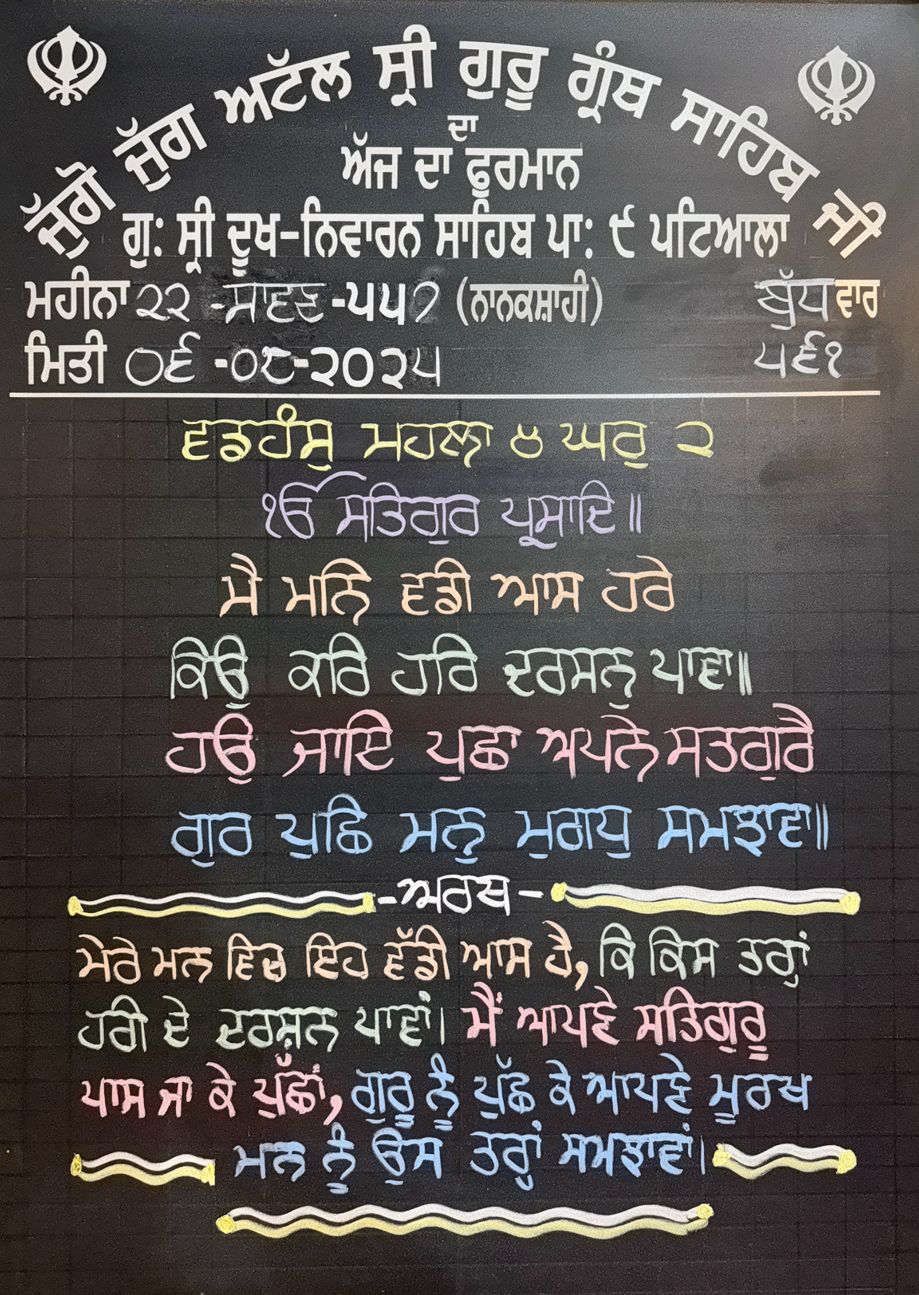 ਜੁੱਗੋ ਜੁੱਗ ਅਟੱਲ ਸ੍ਰੀ ਗੁਰੂ ਗ੍ਰੰਥ ਸਾਹਿਬ ਜੀ
ਦਾ
ਅੱਜ ਦਾ ਫੁਰਮਾਨ
ਗੁ: ਸ੍ਰੀ ਦੂਖ-ਨਿਵਾਰਨ ਸਾਹਿਬ ਪਾ: ੯ ਪਟਿਆਲਾ
ਮਹੀਨਾ ੨੨ -ਸਾਵਣ -੫੫੭ (ਨਾਨਕਸ਼ਾਹੀ) ਬੁੱਧ ਵਾਰ
ਮਿਤੀ ੦੬ -੦੮-੨੦੨੫ ੫੬੧
ਵਡਹੰਸੁ ਮਹਲਾ ੪ ਘਰੁ ੨
ੴ ਸਤਿਗੁਰ ਪ੍ਰਸਾਦਿ॥
ਮੈ ਮਨਿ ਵਡੀ ਆਸ ਹਰੇ
ਕਿਉ ਕਰਿ ਹਰਿ ਦਰਸਨੁ ਪਾਵਾ॥
ਹਉ ਜਾਇ ਪੁਛਾ ਅਪਨੇ ਸਤਗੁਰੈ
ਗੁਰ ਪੁਛਿ ਮਨੁ ਮੁਗਧੁ ਸਮਝਾਵਾ॥
-ਅਰਥ-
ਮੇਰੇ ਮਨ ਵਿਚ ਇਹ ਵੱਡੀ ਆਸ ਹੈ, ਕਿ ਕਿਸ ਤਰ੍ਹਾਂ
ਹਰੀ ਦੇ ਦਰਸ਼ਨ ਪਾਵਾਂ। ਮੈਂ ਆਪਣੇ ਸਤਿਗੁਰੂ
ਪਾਸ ਜਾ ਕੇ ਪੁੱਛਾਂ, ਗੁਰੂ ਨੂੰ ਪੁੱਛ ਕੇ ਆਪਣੇ ਮੂਰਖ
ਮਨ ਨੂੰ ਉਸ ਤਰ੍ਹਾਂ ਸਮਝਾਵਾਂ।